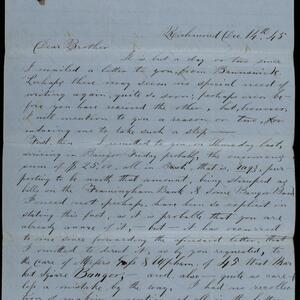 Richmond Dec 14th 45
Dear Brother
It is but a day or two since
I mailed a letter to you from Brunswick.
Perhaps there may seem no special need of
writing again, quite so soon, perhaps even be-
fore you have received the other, but, however,
I will mention to you a reason or two, for
inducing me to take such a step —
First, then I sent to you on Thursday last,
arriving in Bangor Friday probably, the enormous
sum of $25.00, all in Cash, that is, rags, pur-
porting to be worth that amount, being stamped as
bills on the Framingham Bank & some Bangor Bank
I need not, perhaps, have been so explicit in
stating this fact, as it is probable that you
are already aware of it, — but it has occurred
to me since forwarding the aforesaid letter that
I omitted to direct it, as you requested, to
the care of Messrs & Upham, of 45 West Mar
ket Square Bangor, — and, also quite as care-
less a mistake by the way. I had no recollec